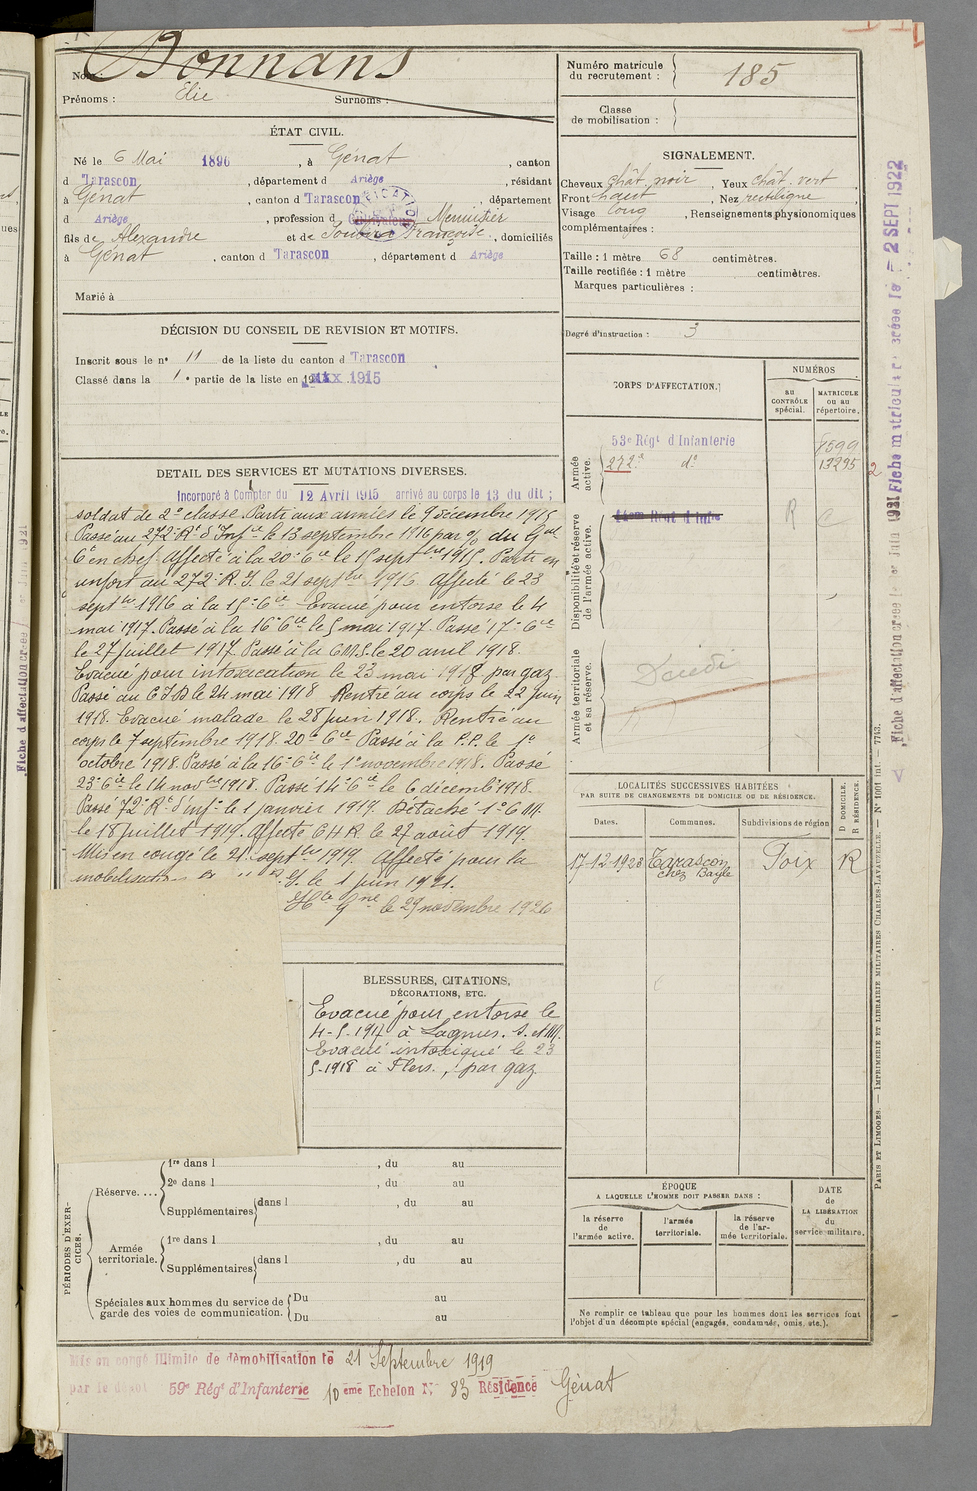 Nom : Bonnans
Prénoms : Elie Surnoms :
ÉTAT CIVIL.
Né le 6 Mai 1896, à Génat, canton
d Tarascon, département d Ariège, résidant
à Génat, canton d Tarascon, département
d Ariège, profession d Cultivateur Menuisier
fils de Alexandre et de Françoise, domiciliés
à Génat, canton d Tarascon, département d Ariège
Marié à
DÉCISION DU CONSEIL DE REVISION ET MOTIFS.
Inscrit sous le n° 11 de la liste du canton d Tarascon
Classé dans la 1e partie de la liste en 1915
DETAIL DES SERVICES ET MUTATIONS DIVERSES.
Incorporé à Compter du 12 Avril 1915 arrivé au corps le 13 du dit ;
soldat de 2e classe. Parti aux armées le 9 décembre 1915
Passé au 272e Rt d'Infie le 13 septembre 1916 par % du Gal
Ct en chef. Affecté à la 20e Cie le 15 septbre 1915. Parti en
renfort au 272e R.I. le 21 septbre 1916. Affecté le 23
septbre 1916 à la 15e Cie Evacué pour entorse le 4
mai 1917. Passé à la 16e Cie le 5 mai 1917. Passé 17e Cie
le 27 juillet 1917. Passé à la C.M.5 le 20 avril 1918.
Evacué pour intoxication le 23 mai 1918 par gaz
Passé au C.I.D le 24 mai 1918 Rentré au corps le 22 juin
1918. Evacué malade le 28 juin 1918. Rentré au
corps le 7 septembre 1918. 20e Cie Passé à la P.P. le 1er
octobre 1918. Passé à la 16e Cie le 1er novembre 1918. Passé
23e Cie le 14 novbre 1918. Passé 14e Cie le 6 décembre 1918.
Passé 72e Rt d'infie le 1 janvier 1919. Détaché 1e C.M.
le 18 juillet 1919. Affecté C.H.R. le 27 août 1919.
Mis en congé le 21 septbre 1919. Affecté pour la
mobilisation R.I. le 1 juin 1921.
le 29 novembre 1926
BLESSURES, CITATIONS,
DÉCORATIONS, ETC.
Evacué pour entorse le
4-5-1917 à Lagnus. S. et M.
Evacué intoxiqué le 23
5-1918 à Flers., par gaz.
PÉRIODES D'EXERCICES.
Réserve....
1re dans l , du au
2e dans l , du au
Supplémentaires dans l , du au
Armée territoriale.
1re dans l , du au
Supplémentaires dans l , du au
Spéciales aux hommes du service de garde des voies de communication.
Du au
Du au
Mis en congé illimité de démobilisation le 21 Septembre 1919
par le dépôt 59e Régt d'Infanterie 10 eme Echelon N° 83 Résidence Génat
Numéro matricule du recrutement : 185
Classe de mobilisation :
SIGNALEMENT.
Cheveux chât. noir, Yeux chât. vert
Front haut, Nez rectiligne
Visage long, Renseignements physionomiques
complémentaires :
Taille : 1 mètre 68 centimètres.
Taille rectifiée : 1 mètre centimètres.
Marques particulières :
Degré d'instruction : 3
CORPS D'AFFECTATION. NUMÉROS
au CONTRÔLE spécial. MATRICULE ou au répertoire.
Armée active.
53e Régt d'Infanterie 7599
272e do 13295
Disponibilité et réserve de l'armée active.
R C
Armée territoriale et sa réserve.
LOCALITÉS SUCCESSIVES HABITÉES
PAR SUITE DE CHANGEMENTS DE DOMICILE OU DE RÉSIDENCE.
D DOMICILE. R RÉSIDENCE.
Dates. Communes. Subdivisions de région
17-12-1923 Tarascon Foix R
chez Bayle
ÉPOQUE
A LAQUELLE L'HOMME DOIT PASSER DANS :
la réserve de l'armée active. l'armée territoriale. la réserve de l'armée territoriale.
DATE de LA LIBÉRATION du service militaire.
Ne remplir ce tableau que pour les hommes dont les services font
l'objet d'un décompte spécial (engagés, condamnés, omis, etc.).
PARIS ET LIMOGES. — IMPRIMERIE ET LIBRAIRIE MILITAIRES CHARLES-LAVAUZELLE. — N° 1001 Int. — 7743.
Fiche matriculaire créée le 2 SEPT 1922
Fiche d'affectation créée le Juin 1921
Fiche d'affectation créée